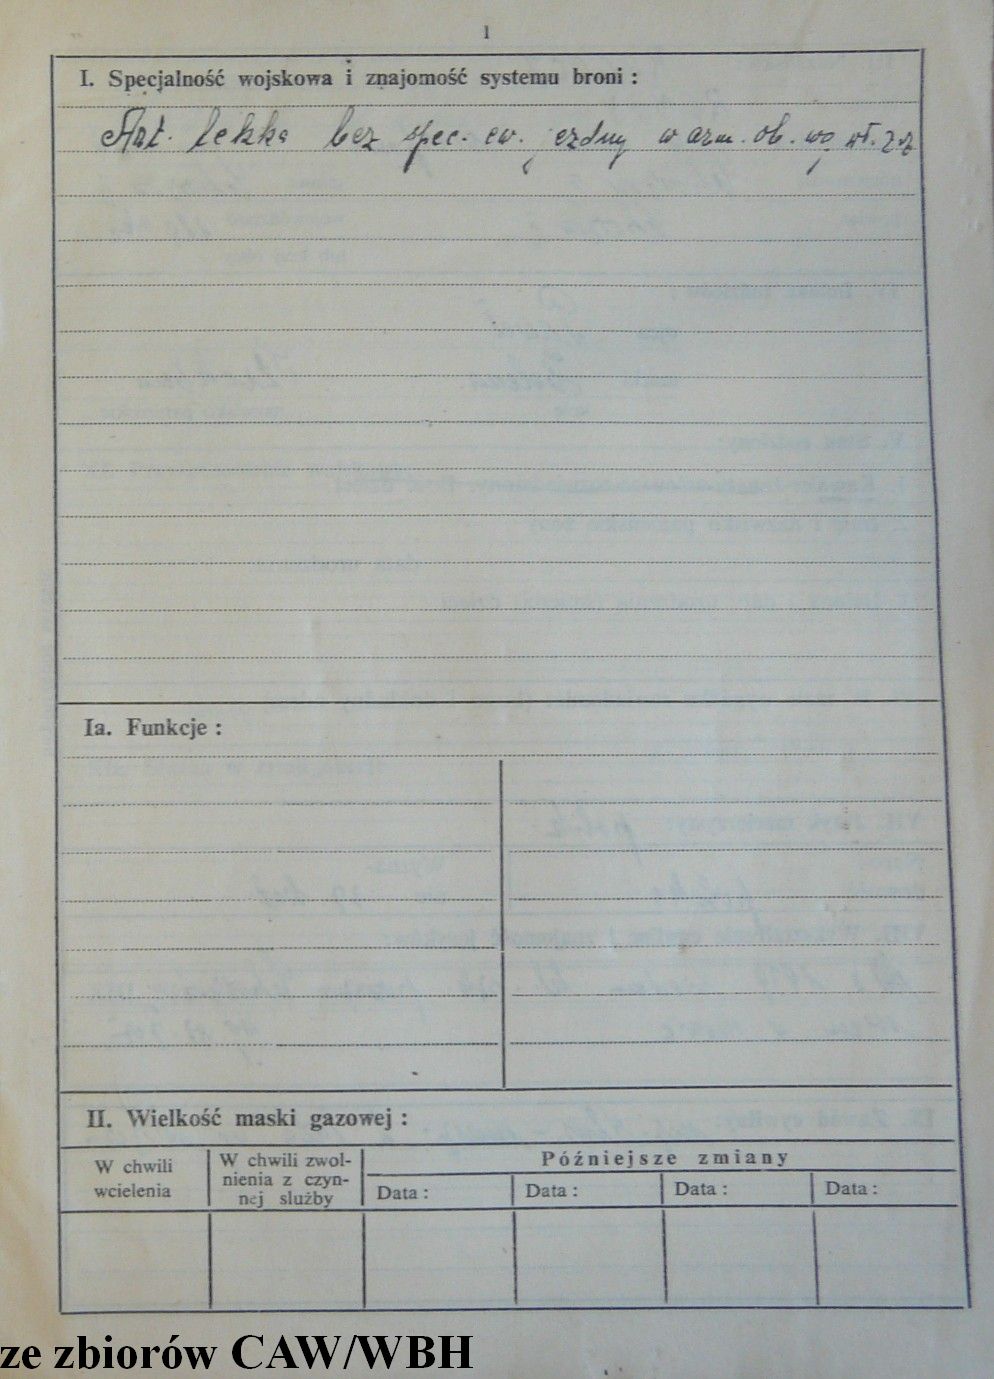 1
I. Specjalność wojskowa i znajomość systemu broni :
Art. lekka bez spec. cw. jezdny w arm. ob. wg wł. z.
Ia. Funkcje :
II. Wielkość maski gazowej :
W chwili wcielenia
W chwili zwol-
nienia z czyn-
nej służby
Późniejsze zmiany
Data : Data : Data : Data :
ze zbiorów CAW/WBH